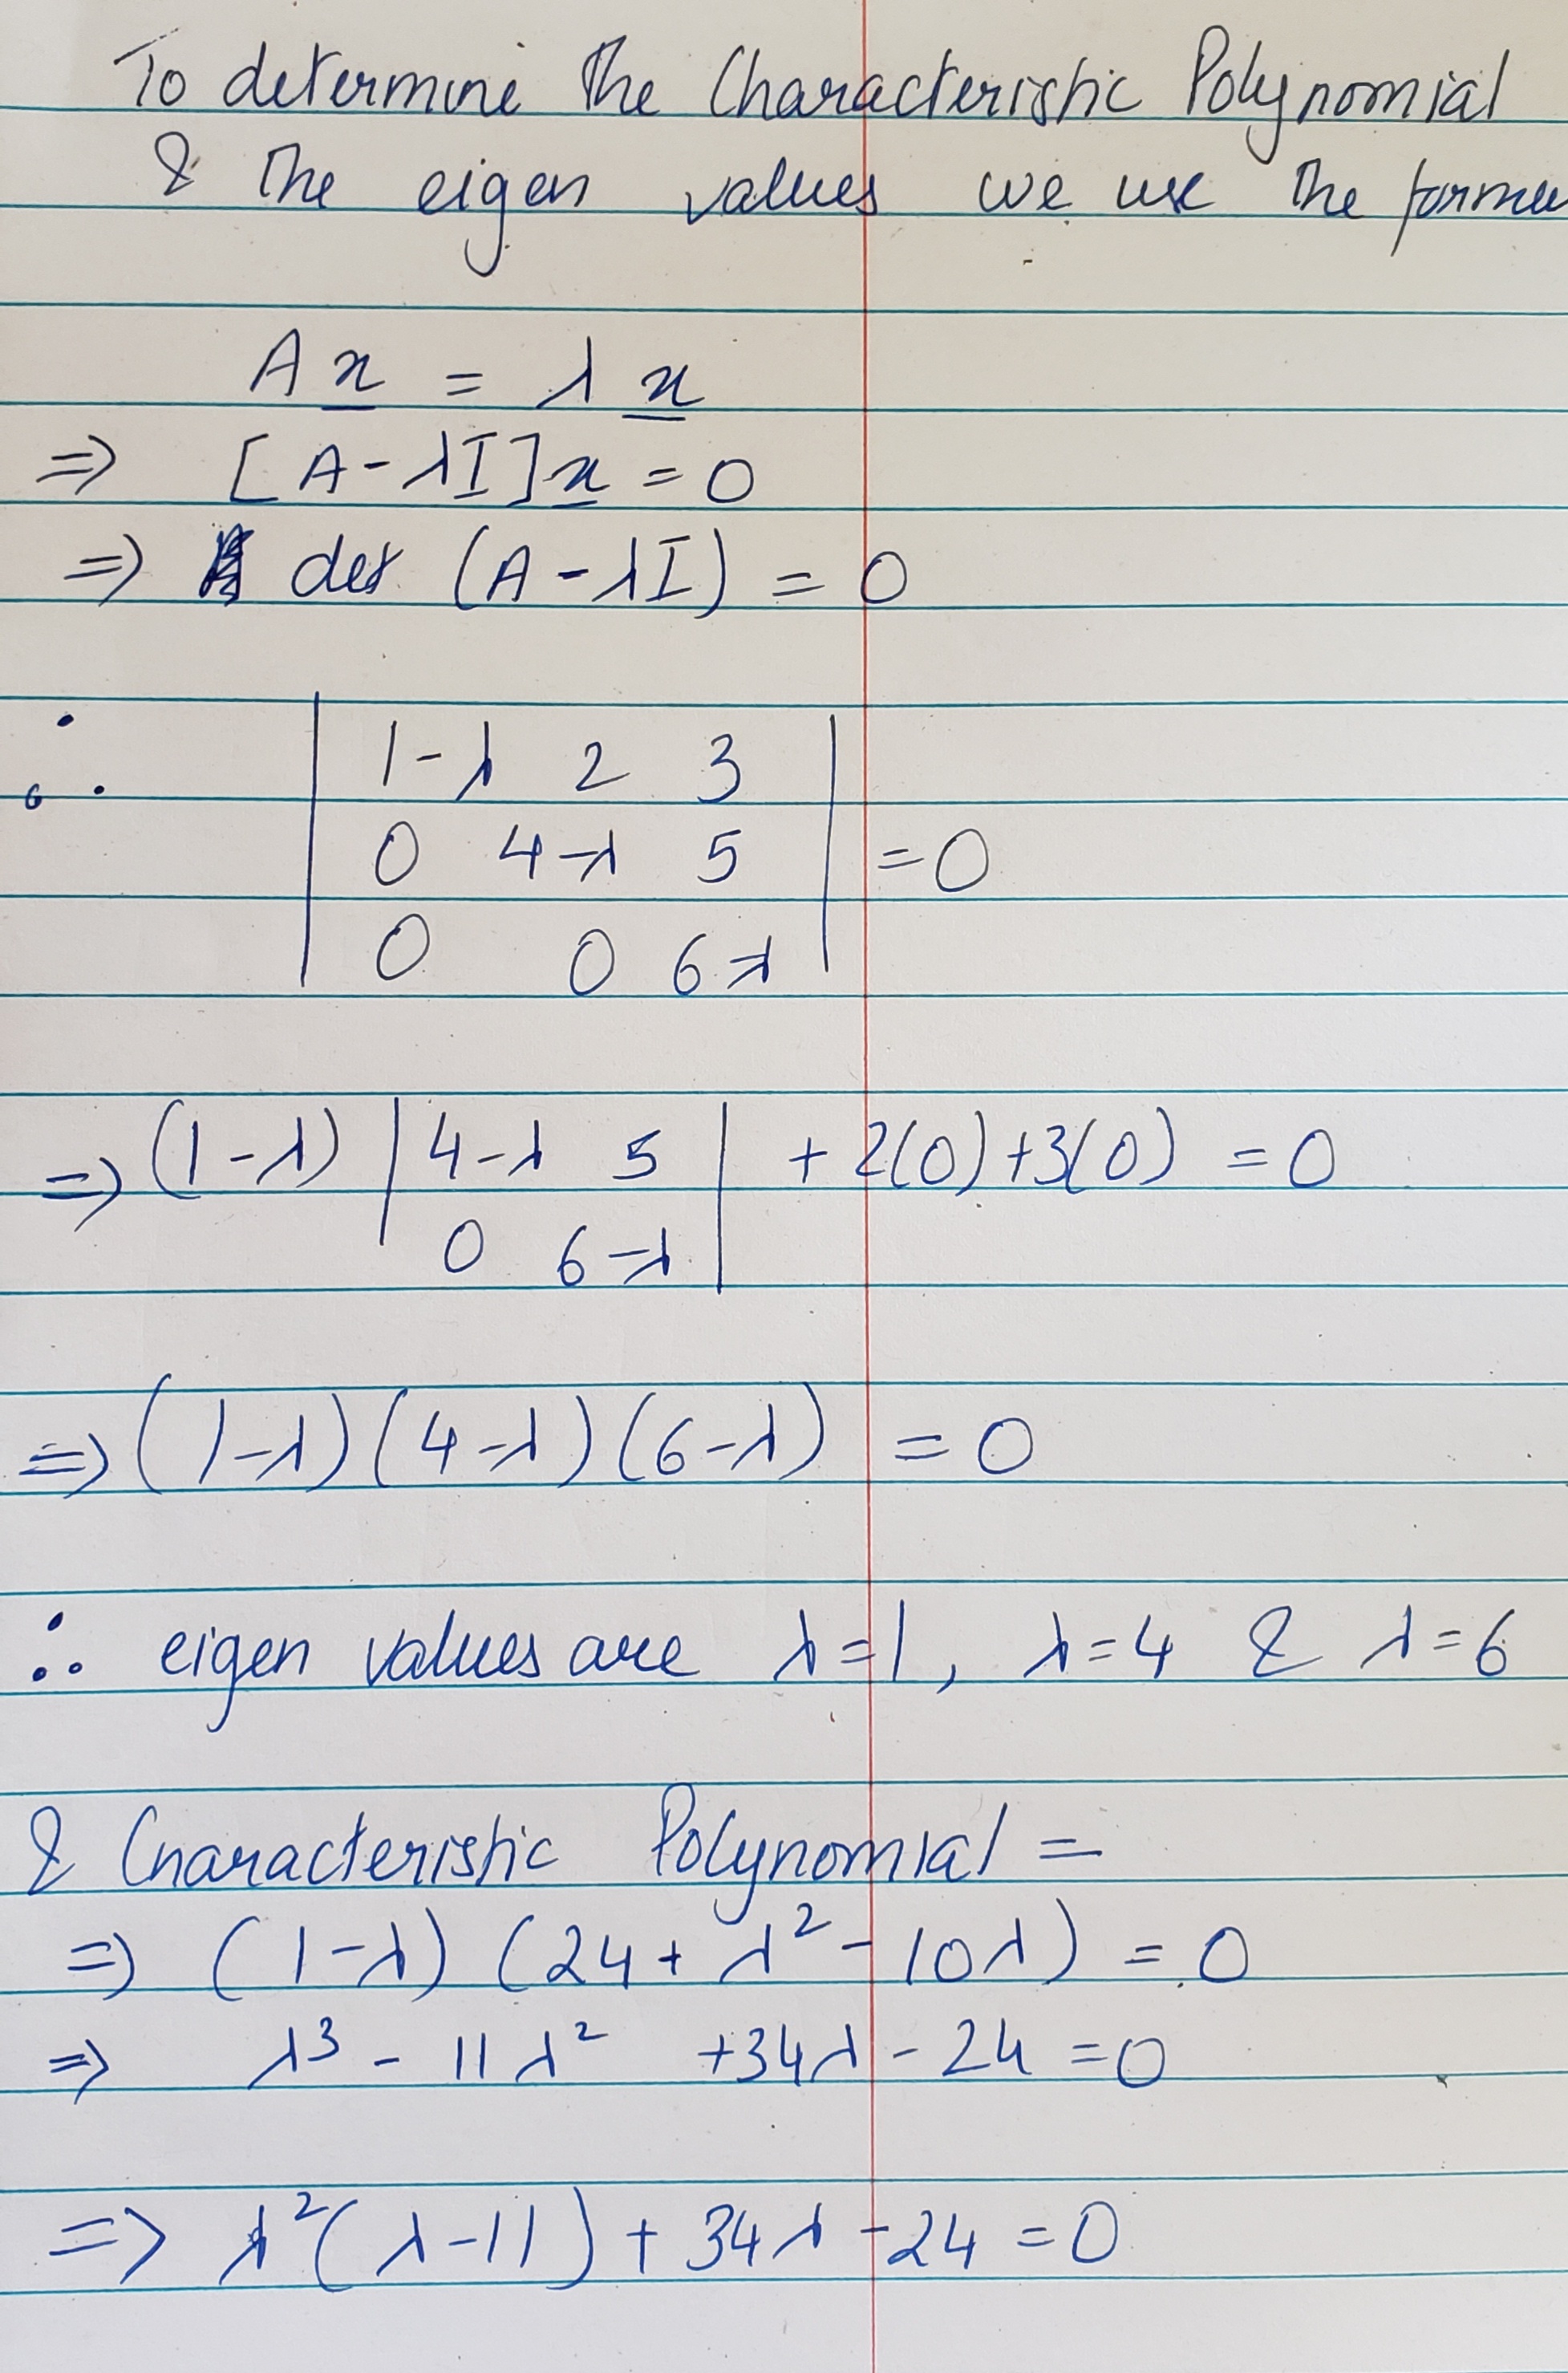 To determine the Characteristic Polynomial
& the eigen values we use the
A x = λ x
⇒ [A - λI] x = 0
⇒ det (A - λI) = 0
∴ | 1-λ 2 3 |
| 0 4-λ 5 | = 0
| 0 0 6-λ |
⇒ (1-λ) | 4-λ 5 | + 2(0) + 3(0) = 0
| 0 6-λ |
⇒ (1-λ) (4-λ) (6-λ) = 0
∴ eigen values are λ=1, λ=4 & λ=6
& Characteristic Polynomial =
⇒ (1-λ) (24 + λ² - 10λ) = 0
⇒ λ³ - 11λ² + 34λ - 24 = 0
⇒ λ²(λ-11) + 34λ - 24 = 0